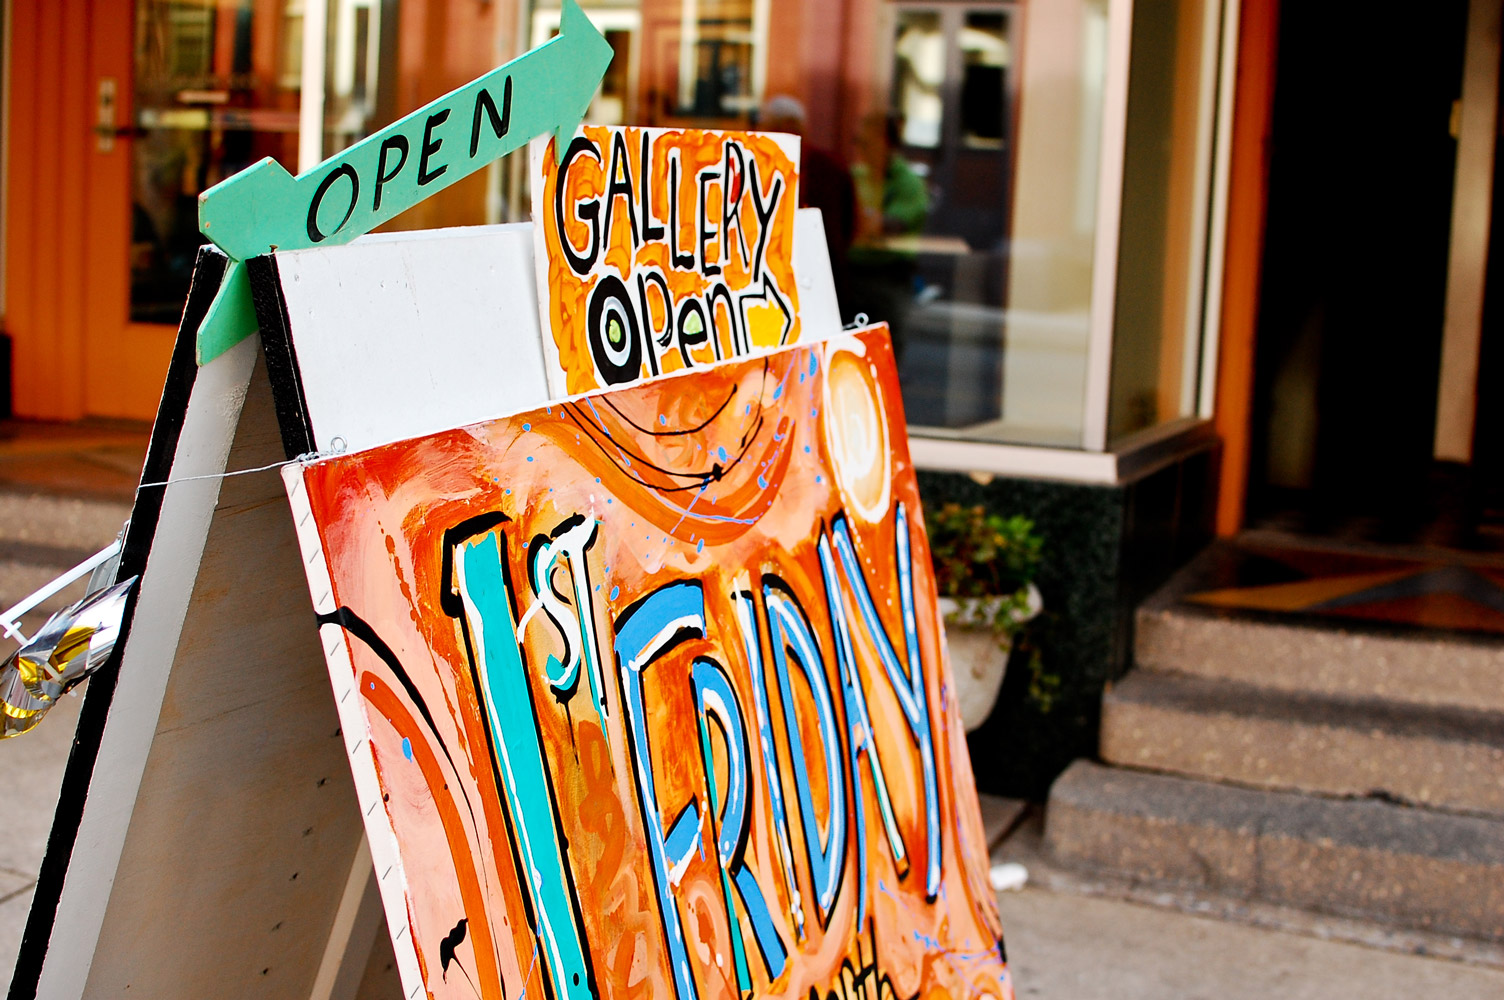 OPEN
GALLERY
OPen
1ST
FRIDAY